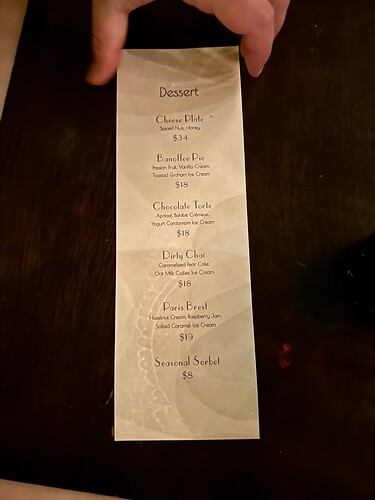 Dessert
Cheese Plate *
Spiced Nuts, Honey
$34
Banoffee Pie
Passion Fruit, Vanilla Cream,
Toasted Graham Ice Cream
$18
Chocolate Torte
Apricot, Bahibé Crémeux,
Yogurt Cardamom Ice Cream
$18
Dirty Chai
Caramelized Pear Cake,
Oat Milk Coffee Ice Cream
$18
Paris Brest
Hazelnut Cream, Raspberry Jam,
Salted Caramel Ice Cream
$19
Seasonal Sorbet
$8